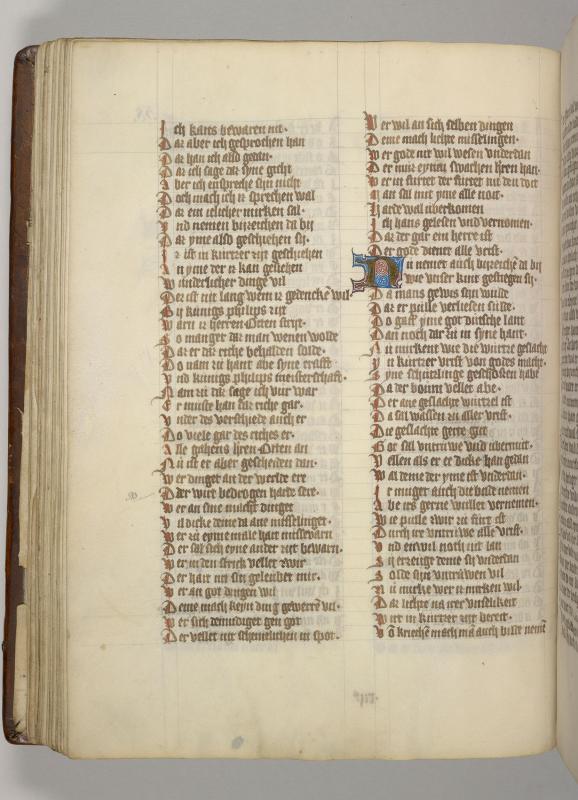 Ich kans bewaren nit·
Dar aber ich gesprochen han
Dar han ich also gedan·
Dar ich sage dar syne gicht
Aber ich enspreche syn nicht
Doch mach ich ir sprechen wal
Dar ein iclicher mirken sal·
Vnd nemen birzeichen da bij
Dar yme also geschiehen sij·
Ir ist in kurtzer zijt geschiehen
An yme der ir kan gesiehen
Wunderlicher dinge vil
Der ist nit lang wenn ir gedencke wil
Bij kunigs philips zijt
Warn ir herren Otten stryt·
So manger dar man wenen wolde
Dar er dar riche behalden solde·
Do nam zu hant abe syne crafft
Vnd kunigs philips meisterschafft·
Nam zu dar sage ich vur war
Er muste han dar riche gar·
Vnder des verschiede auch er
Do viele gar des riches er·
Alle gahens hren Otten an
Nu ist er aber gescheiden dan·
Wer dinget an der werlde ere
Der wirt bedrogen harte sere·
Wer an sine macht dinget
Vil dicke deme da ane misselinget·
Wer zu eyme male hait missevarn
Der sal sich eyne ander zijt bewarn·
Wer in den strick vellet zwir
Der hait nit sin geleubet mir·
Wer an got dingen wil
Deme mach keyn ding gewerre vil·
Wer sich demudiget gen got
Der vellet nit schemelichen in spot·
Wer wil an sich selben dingen
Deme mach lichte misselingen·
Wer gode nit wil wesen vnderdan
Der mus eynen swachen hren han·
Wer in furtet der furtet nit den doit
Man sal mit yme alle noit·
Harde wal uberkomen
Ich hans gelesen vnd vernomen·
Dar der gar ein herre ist
Der gode diener alle vrist·
Nu nemet auch birzeiche da bij
Wie vnser kint gestiegen sij·
Da mans gewis syn wilde
Dar er pulle verliesen sulde·
Do gaff yme got dutsche lant
Dan noch dar zu in syne hant·
Nu mirkent wie die wurtze geslacht
In kurtzer vrist von godes macht·
Syne schutzlinge geschossen habe
Da der boum vellet abe·
Der ane geslachte wurtzel ist
Da sal wassen zu aller vrist·
Die geslachte gerte gut
Got sal vntruwe vnd ubermut·
Vellen als er ee dicke han gedan
Wal deme der yme ist vnderdan·
Ir muget auch die bilde nemen
Abe irs gerne wullet vernemen·
Wie pulle zwir zu furt ist
Durch ir vntruwe alle vrist·
Vnd enwil noch nit lan
Sij erzeuge deme sij vnderdan
Solde sijn vntruwen vil
Nu mirke wer ir mirken wil
Dar lichte na irer vnselikeit
Wirt in kurtzer zijt bereit·
Vo kriechē mach mā auch bilde nemē